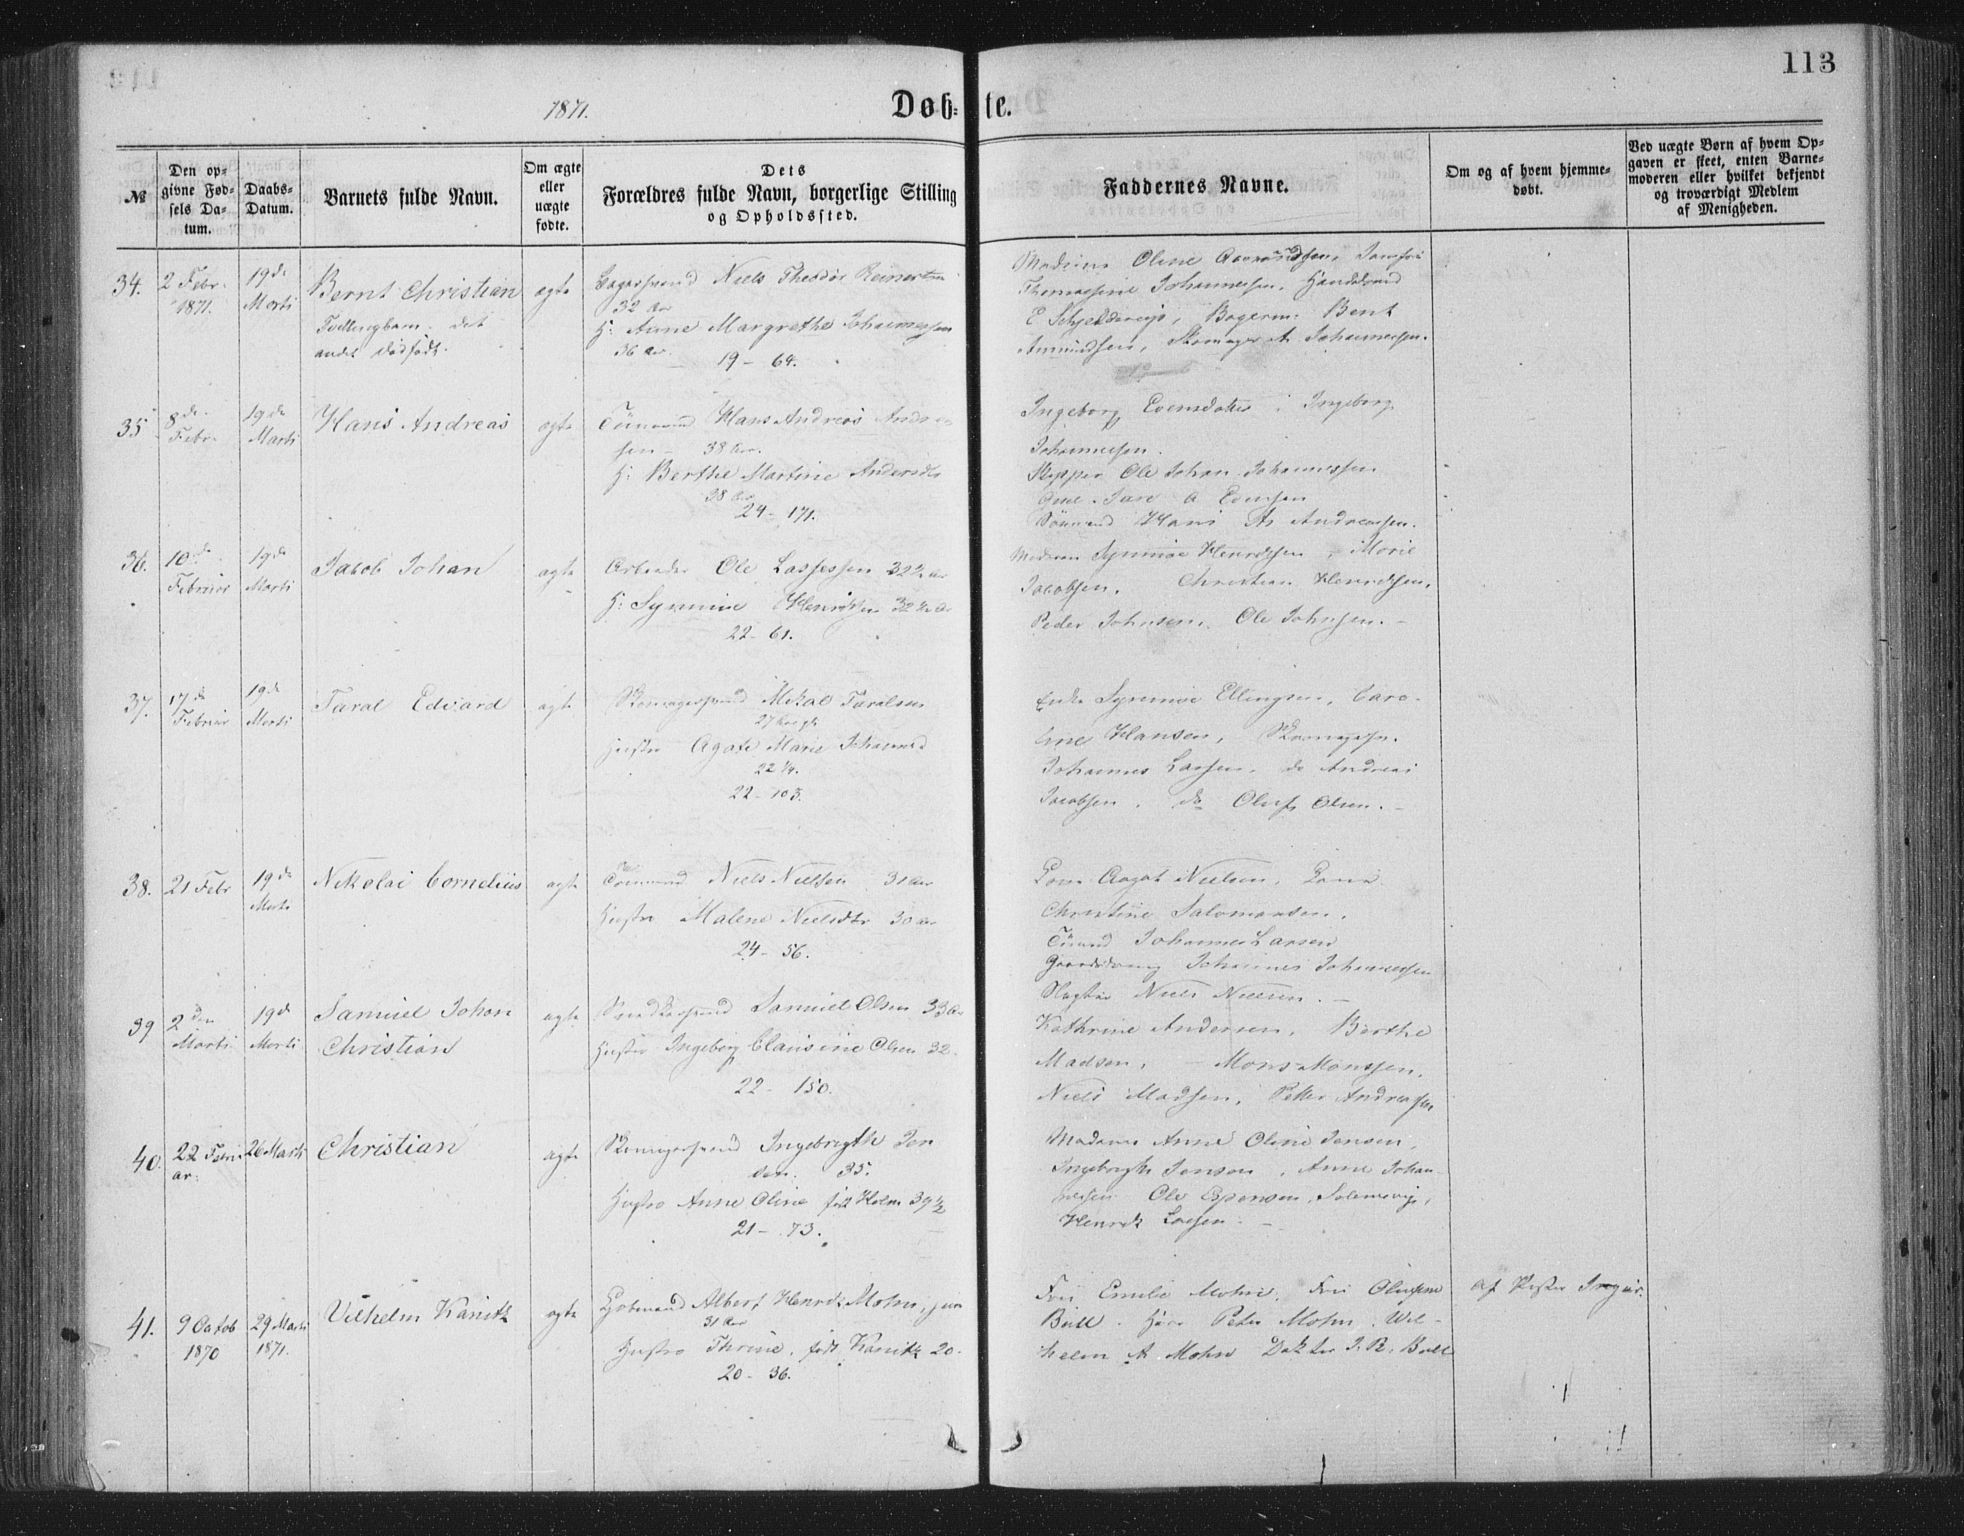 113
1871.
Døb-te.
№
Den opgivne Fødsels Datum.
Daabs-Datum.
Barnets fulde Navn.
Om ægte eller uægte fødte.
Dets Forældres fulde Navn, borgerlige Stilling og Opholdssted.
Faddernes Navne.
Om og af hvem hjemmedøbt.
Ved uægte Børn af hvem Opgaven er skeet, enten Barnemoderen eller hvilket bekjendt og troværdigt Medlem af Menigheden.
34.
2 Febr.
1871.
19de
Marti
Bernt Christian
Tvillingbarn. det
andet dødfødt.
ægte
Niels Theodor Reinertsen
32 Aar
H: Anne Margrethe Johannessen
36 Aar.
19 - 64.
Madame Oline
Thomasine Johannessen,
Bagerm. Bent
Amundsen, Skomager A. Johannessen.
35
8de
Febr.
19de
Marti
Hans Andreas
ægte
Hans Andreas
sen - 38 Aar.
H: Berthe Martine Andersdtr
38 Aar
24 - 171.
Ingeborg Evensdatter, Ingeborg
Johannessen.
Skipper Ole Johan Johannessen
A Evensen
Hans As Andreassen.
36.
10de
Februar
19de
Marti
Jacob Johan
ægte
Arbeider Ole Lassessen 32½ Aar
H: Synnive Henriksen 32½ Aar
22 - 61.
Madame Synnive Henriksen, Marie
Jacobsen, Christian Henriksen,
Peder Johnsen, Ole Johnsen. -
37.
17de
Februar
19de
Marti
Taral Edvard
ægte
Skomagersvend Mikal Taralsen
27 Aar gl.
Hustro Agate Marie
22 ¼.
22 - 103.
Enke Synnive Ellingsen, Caro-
line Hansen,
Johannes Larsen, do Andreas
Jacobsen, do Oluf Olsen. -
38.
21 Febr
19de
Marti
Nikolai Cornelius
ægte
Niels Nielsen 31 Aar
Hustro Malene Nielsdtr 30 Aar
24 - 56.
Aagot Nielsen,
Christine Salomonsen,
Johannes Larsen
Johannes Johannessen
Slagter Niels Nielsen. -
39
2den
Marti
19de
Marti
Samuel Johan
Christian
ægte
Samuel Olsen 33 Aar
Hustro Ingeborg Clausine Olsen 32.
22 - 150.
Kathrine Andersen, Berthe
Madsen, - Mons Monssen,
Niels Madsen, Petter Andreassen
40.
22 Febru
ar.
26 Marti
Christian
ægte
Skomagersvend Ingebrigth Jen
sen. 35.
Hustro Anne Oline født Holm 39 ½
21 - 73.
Madame Anne Oline Jensen,
Jensen, Anne Johan-
nessen Ole Espensen,
Henrik Larsen. -
41.
9 Octob
1870
29 Marti
1871.
Vilhelm Konitz
ægte
Kjøbmand Albert Henrik Mohn, jun
31 Aar
Hustro Thrine, født Konitz 20.
20 - 36.
Fru Emilie Mohn, Fru
Bull. Herr Peter Mohn, Wil-
helm A Mohn Doktor J. R. Bull